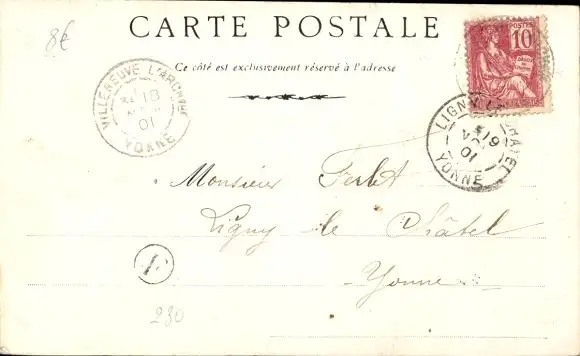 8€
CARTE POSTALE
Ce côté est exclusivement réservé à l'adresse
POSTES
10
VILLENEUVE L'ARCHVQUE
18
01
YONNE
LIGNY LE CHATEL
19
01
YONNE
Monsieur
Ligny le Châtel
Yonne
230